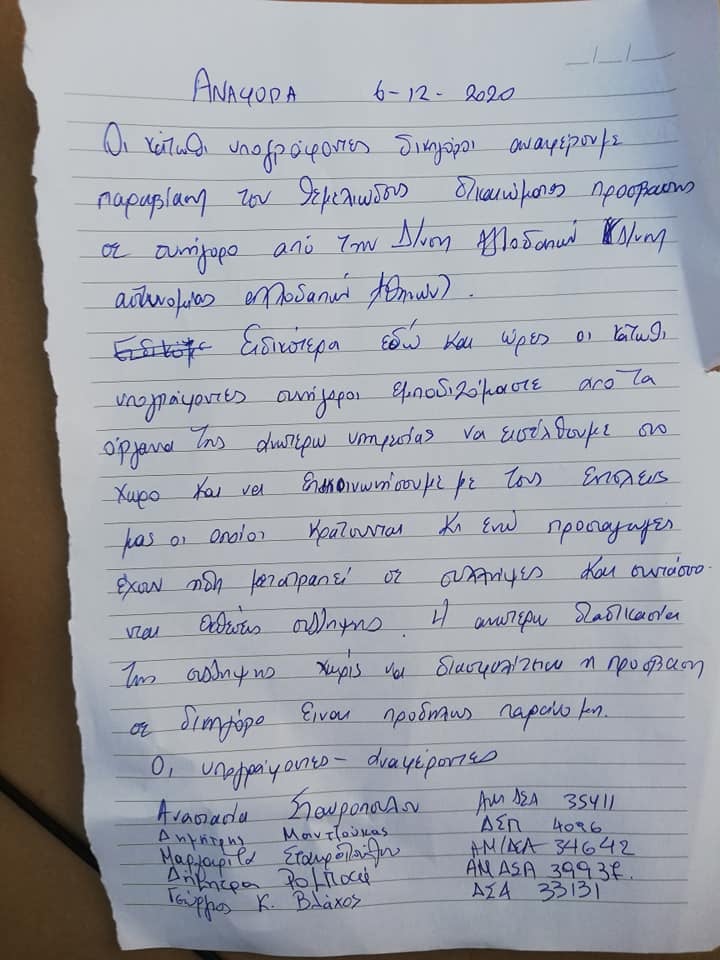 ΑΝΑΦΟΡΑ 6-12-2020
Οι κάτωθι υπογράφοντες δικηγόροι αναφέρουμε
παραβίαση του θεμελιώδους δικαιώματος πρόσβασης
σε συνήγορο από την Δ/νση Αλλοδαπών (Δ/νση
αστυνομίας αλλοδαπών Αθηνών).
Ειδικότερα εδώ και ώρες οι κάτωθι
υπογράφοντες συνήγοροι εμποδιζόμαστε από τα
όργανα της ανωτέρω υπηρεσίας να εισέλθουμε στο
χώρο και να επικοινωνήσουμε με τους εντολείς
μας οι οποίοι κρατούνται κι ενώ προσαγωγές
έχουν ήδη μετατραπεί σε συλλήψεις και συντάσσο-
νται εκθέσεις σύλληψης. Η ανωτέρω διαδικασία
της σύλληψης χωρίς να διασφαλίζεται η πρόσβαση
σε δικηγόρο είναι προδήλως παράνομη.
Οι υπογράφοντες - αναφέροντες
Αναστασία Σταυροπούλου ΑΜ ΔΣΑ 35411
Δημήτρης Μαντζούκας ΔΣΠ 4096
Μαργαρίτα Σταυροπούλου ΑΜ/ΔΣΑ 34642
Δήμητρα ΑΜ ΔΣΑ 39937.
Γεώργιος Κ. Βλάχος ΔΣΑ 33131